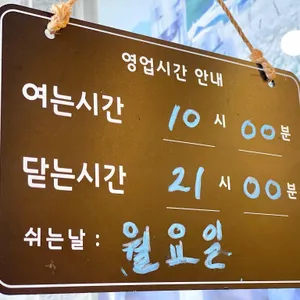 영업시간 안내
여는시간 10시 00분
닫는시간 21시 00분
쉬는날 : 월요일